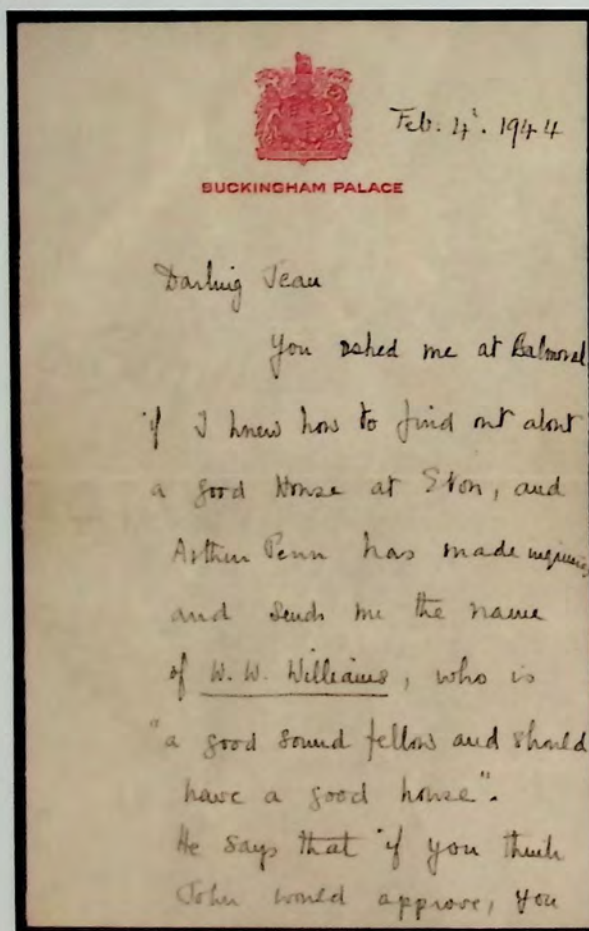 Feb. 4'. 1944
BUCKINGHAM PALACE
Darling Jean
You asked me at Balmoral
if I knew how to find out about
a good House at Eton, and
Arthur Penn has made inquiries
and sends me the name
of W. W. Williams, who is
"a good sound fellow and should
have a good house".
He says that if you think
John would approve, you